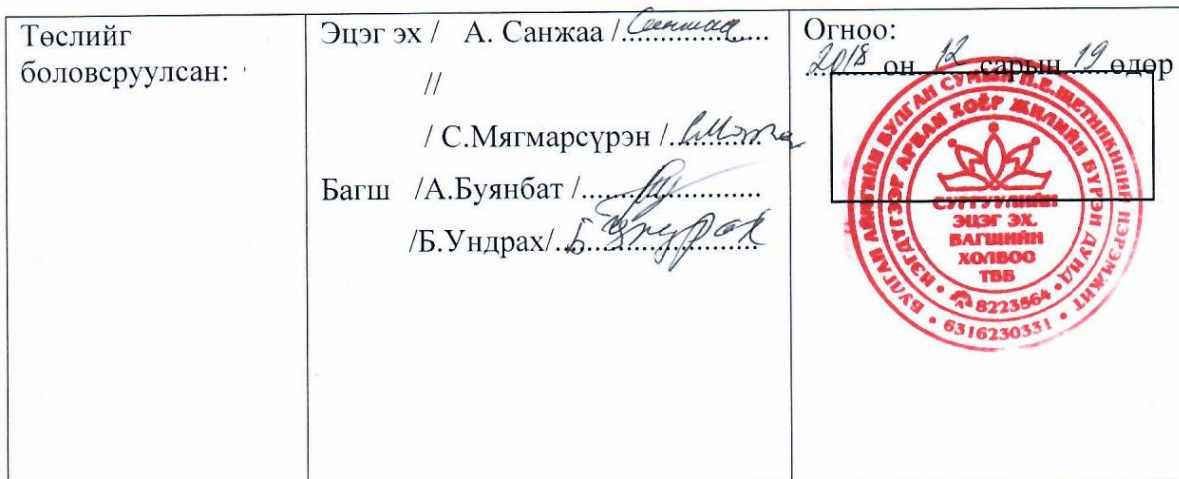 Төслийг
боловсруулсан:
Эцэг эх / А. Санжаа / Санжаа
//
/ С.Мягмарсүрэн /
Багш /А.Буянбат /
/Б.Ундрах/ Б Ундрах
Огноо:
2018 он 12 сарын 19 өдөр
БУЛГАН АЙМГИЙН БУЛГАН СУМЫН П.Е.ЩЕТИНКИНИЙ НЭРЭМЖИТ
НЭГДҮГЭЭР АРВАН ХОЁР ЖИЛИЙН БҮРЭН ДУНД
СУРГУУЛИЙН
ЭЦЭГ ЭХ.
БАГШИЙН
ХОЛБОО
ТББ
8223564
6316230331